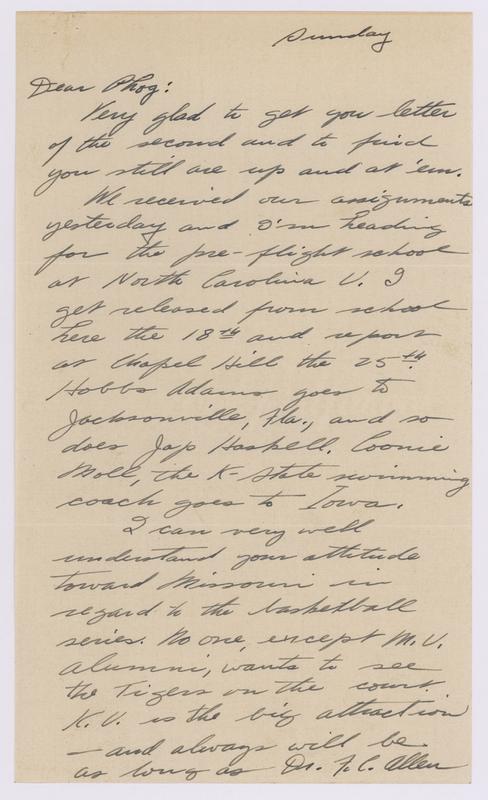 Sunday
Dear Phog:
Very glad to get you letter
of the second and to find
you still are up and at 'em.
We received our assignments
yesterday and I'm heading
for the pre-flight school
at North Carolina U. I
get released from school
here the 18th and report
at Chapel Hill the 25th.
Hobbs Adams goes to
Jacksonville, Fla., and so
does Jap Haskell. Coonie
Moll, the K-State swimming
coach goes to Iowa.
I can very well
understand your attitude
toward Missouri in
regard to the basketball
series. No one, except M.U.
alumni, wants to see
the Tigers on the court.
K.U. is the big attraction
— and always will be
as long as Dr. F.C. Allen